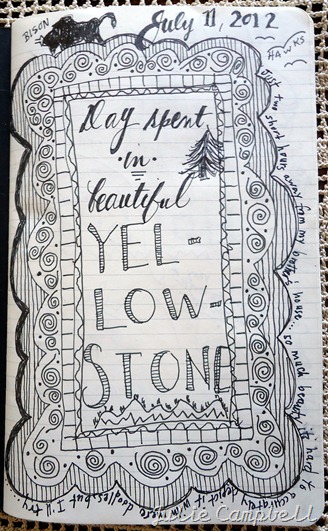 BISON
July 11, 2012
HAWKS
Day spent
in
beautiful
YEL-
LOW-
STONE
Just two short hours away from my brother's house... so much beauty, it's hard to accurately depict it w/ mere doodles, but I'll try...
Susie Campbell